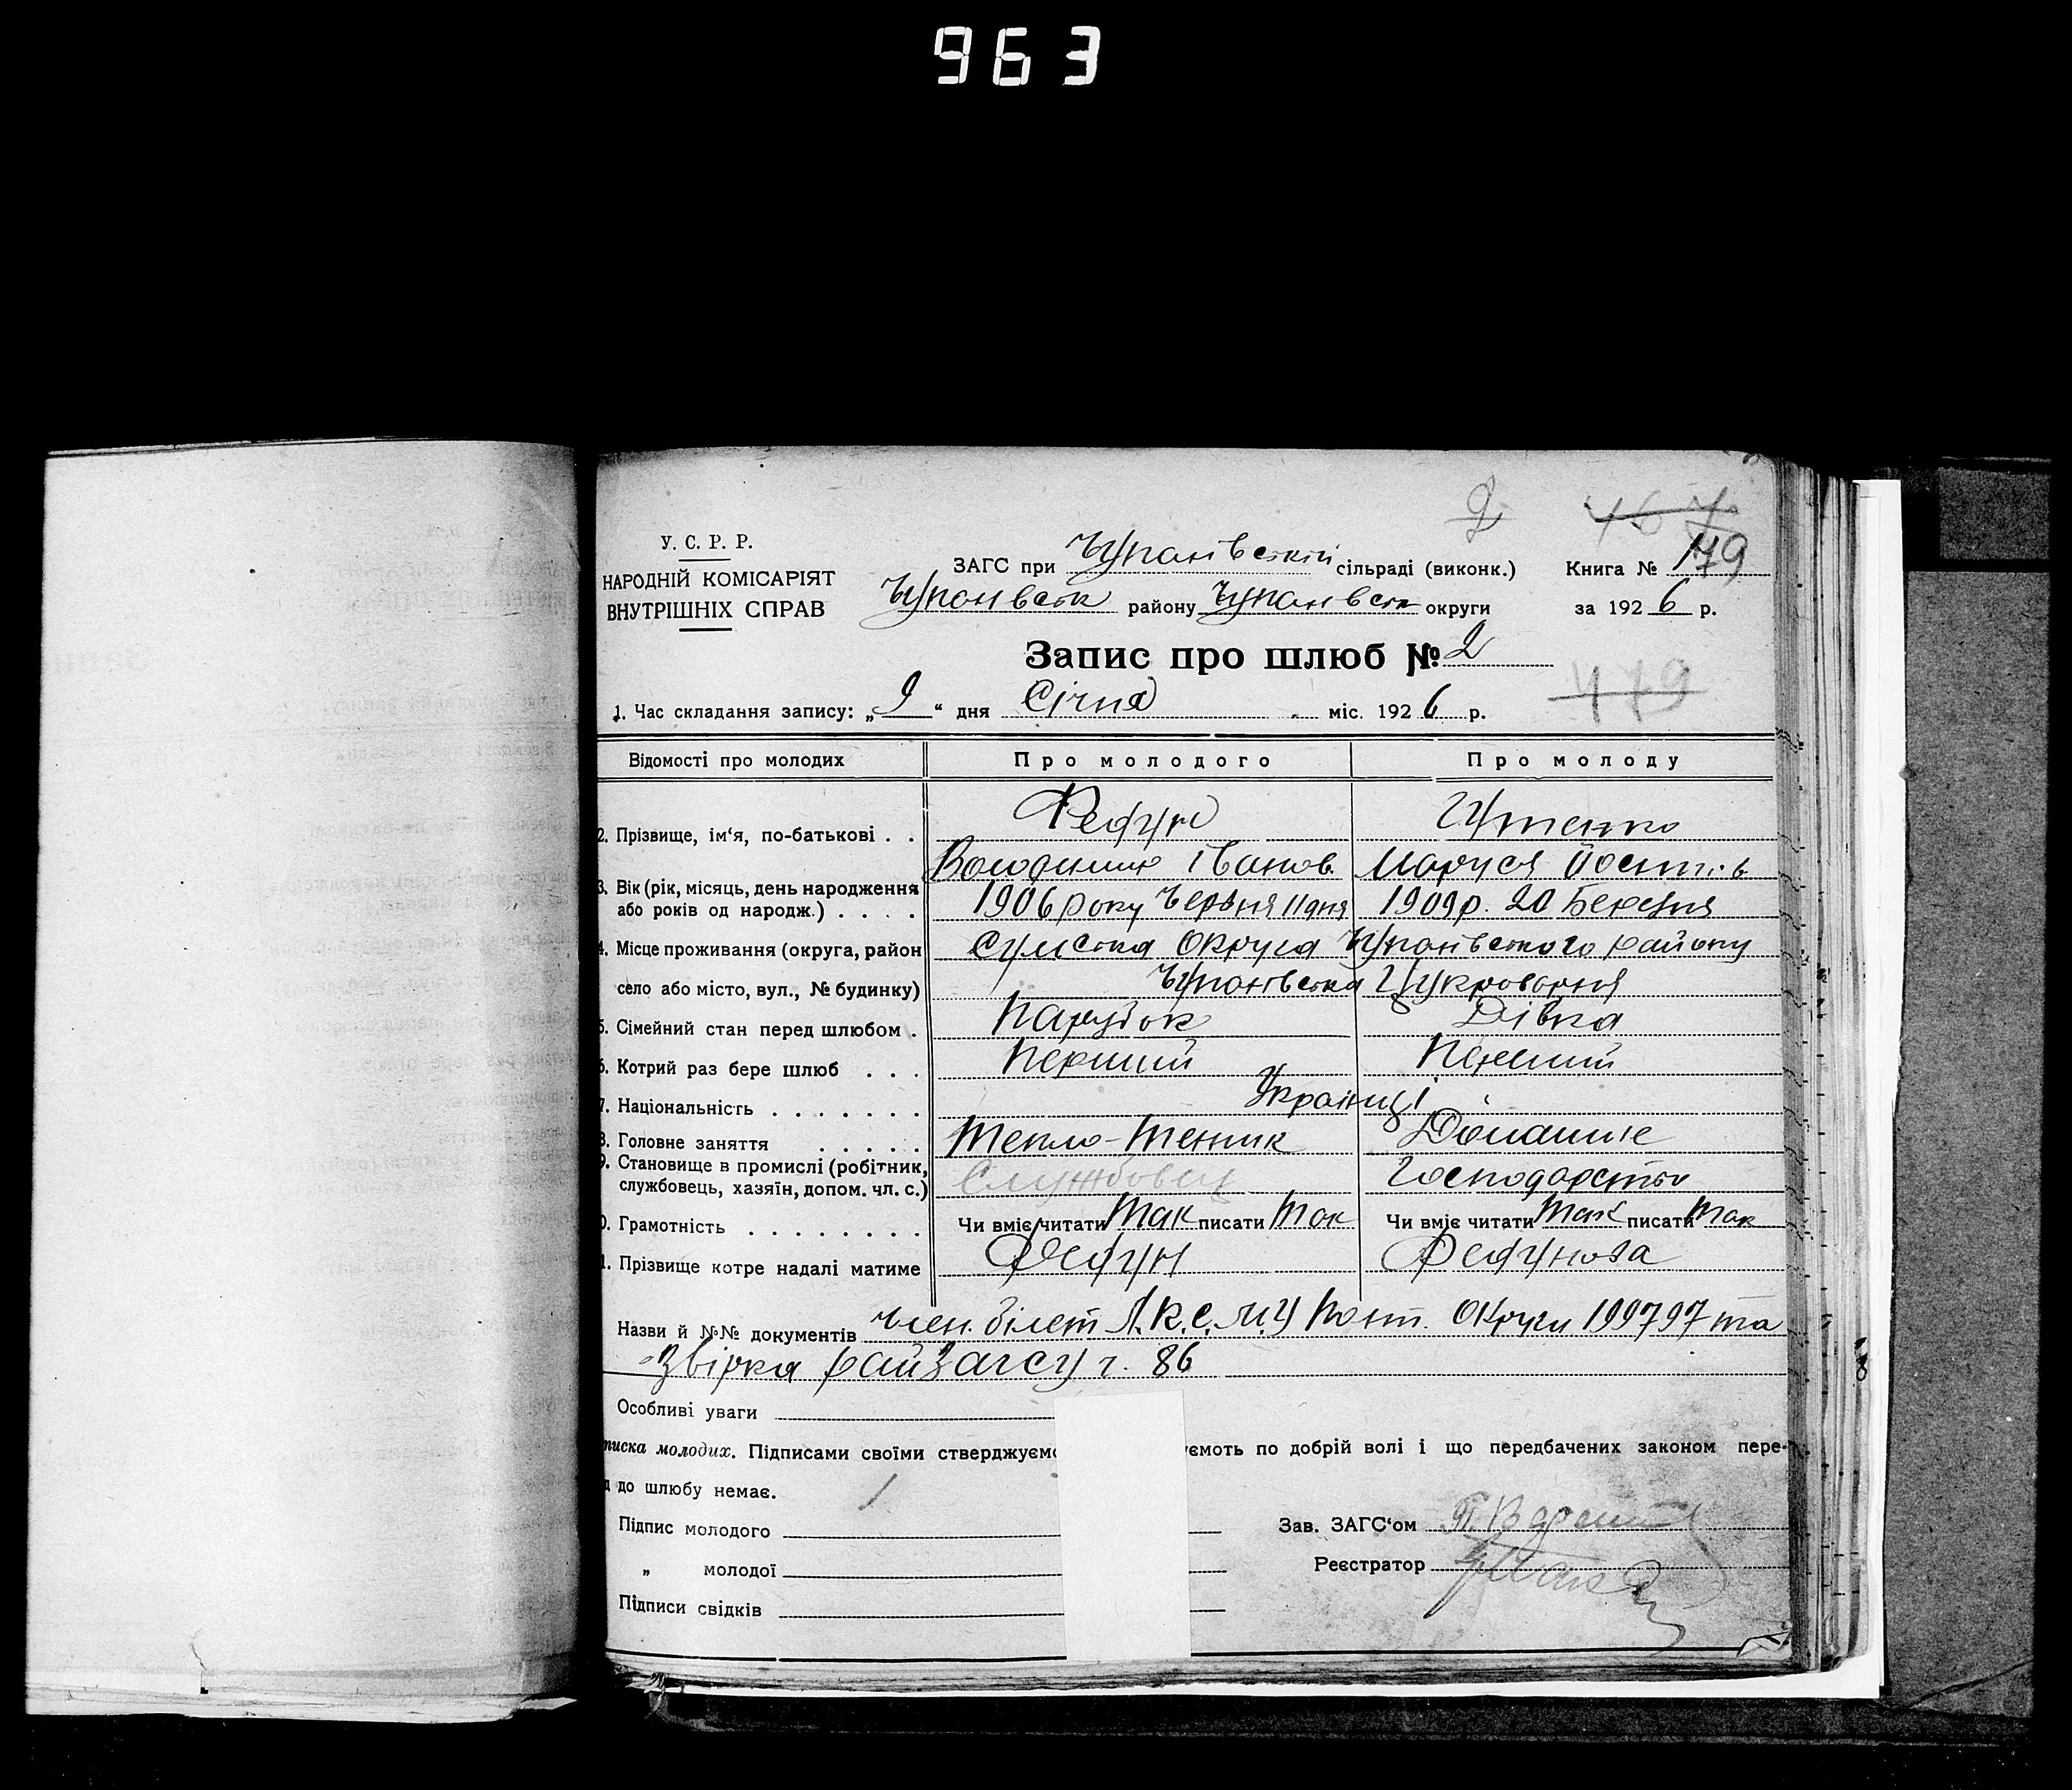 963
2
179
У. С. Р. Р.
НАРОДНІЙ КОМІСАРІЯТ
ВНУТРІШНІХ СПРАВ
ЗАГС при Чупахівській сільраді (виконк.)
Чупахівськ району Чупахівськ округи
Книга №
за 1926 р.
Запис про шлюб № 2
479
1. Час складання запису: „9“ дня Січня міс. 1926 р.
Відомості про молодих Про молодого Про молоду
2. Прізвище, ім‘я, по-батькові . . Федун Гутенко
Володимир Іванов. Маруся
3. Вік (рік, місяць, день народження 1906 року Червня 11 дня 1909 р. 20 Березня
або років од народж.) . . . .
4. Місце проживання (округа, район Сумська Округа Чупахівського району
село або місто, вул., № будинку) Чупахівська Цукроварня
5. Сімейний стан перед шлюбом . Парубок Дівка
6. Котрий раз бере шлюб . . . Перший Перший
7. Національність . . . . . . . Українці
8. Головне заняття . . . . . Тепло-Техник Домашнє
9. Становище в промислі (робітник, Службовець Господарство
службовець, хазяїн, допом. чл. с.)
0. Грамотність . . . . . . . . Чи вміє читати Так писати Так Чи вміє читати Так писати Так
1. Прізвище котре надалі матиме Федун Федунова
Назви й №№ документів член. білет Л.К.С.М.У Округи 199797 та
звірка райзагсу ч. 86
Особливі уваги
писка молодих. Підписами своїми стверджуємо
уємоть по добрій волі і що передбачених законом пере-
д до шлюбу немає.
Підпис молодого
„ молодої
Підписи свідків
Зав. ЗАГС‘ом
Реєстратор
8